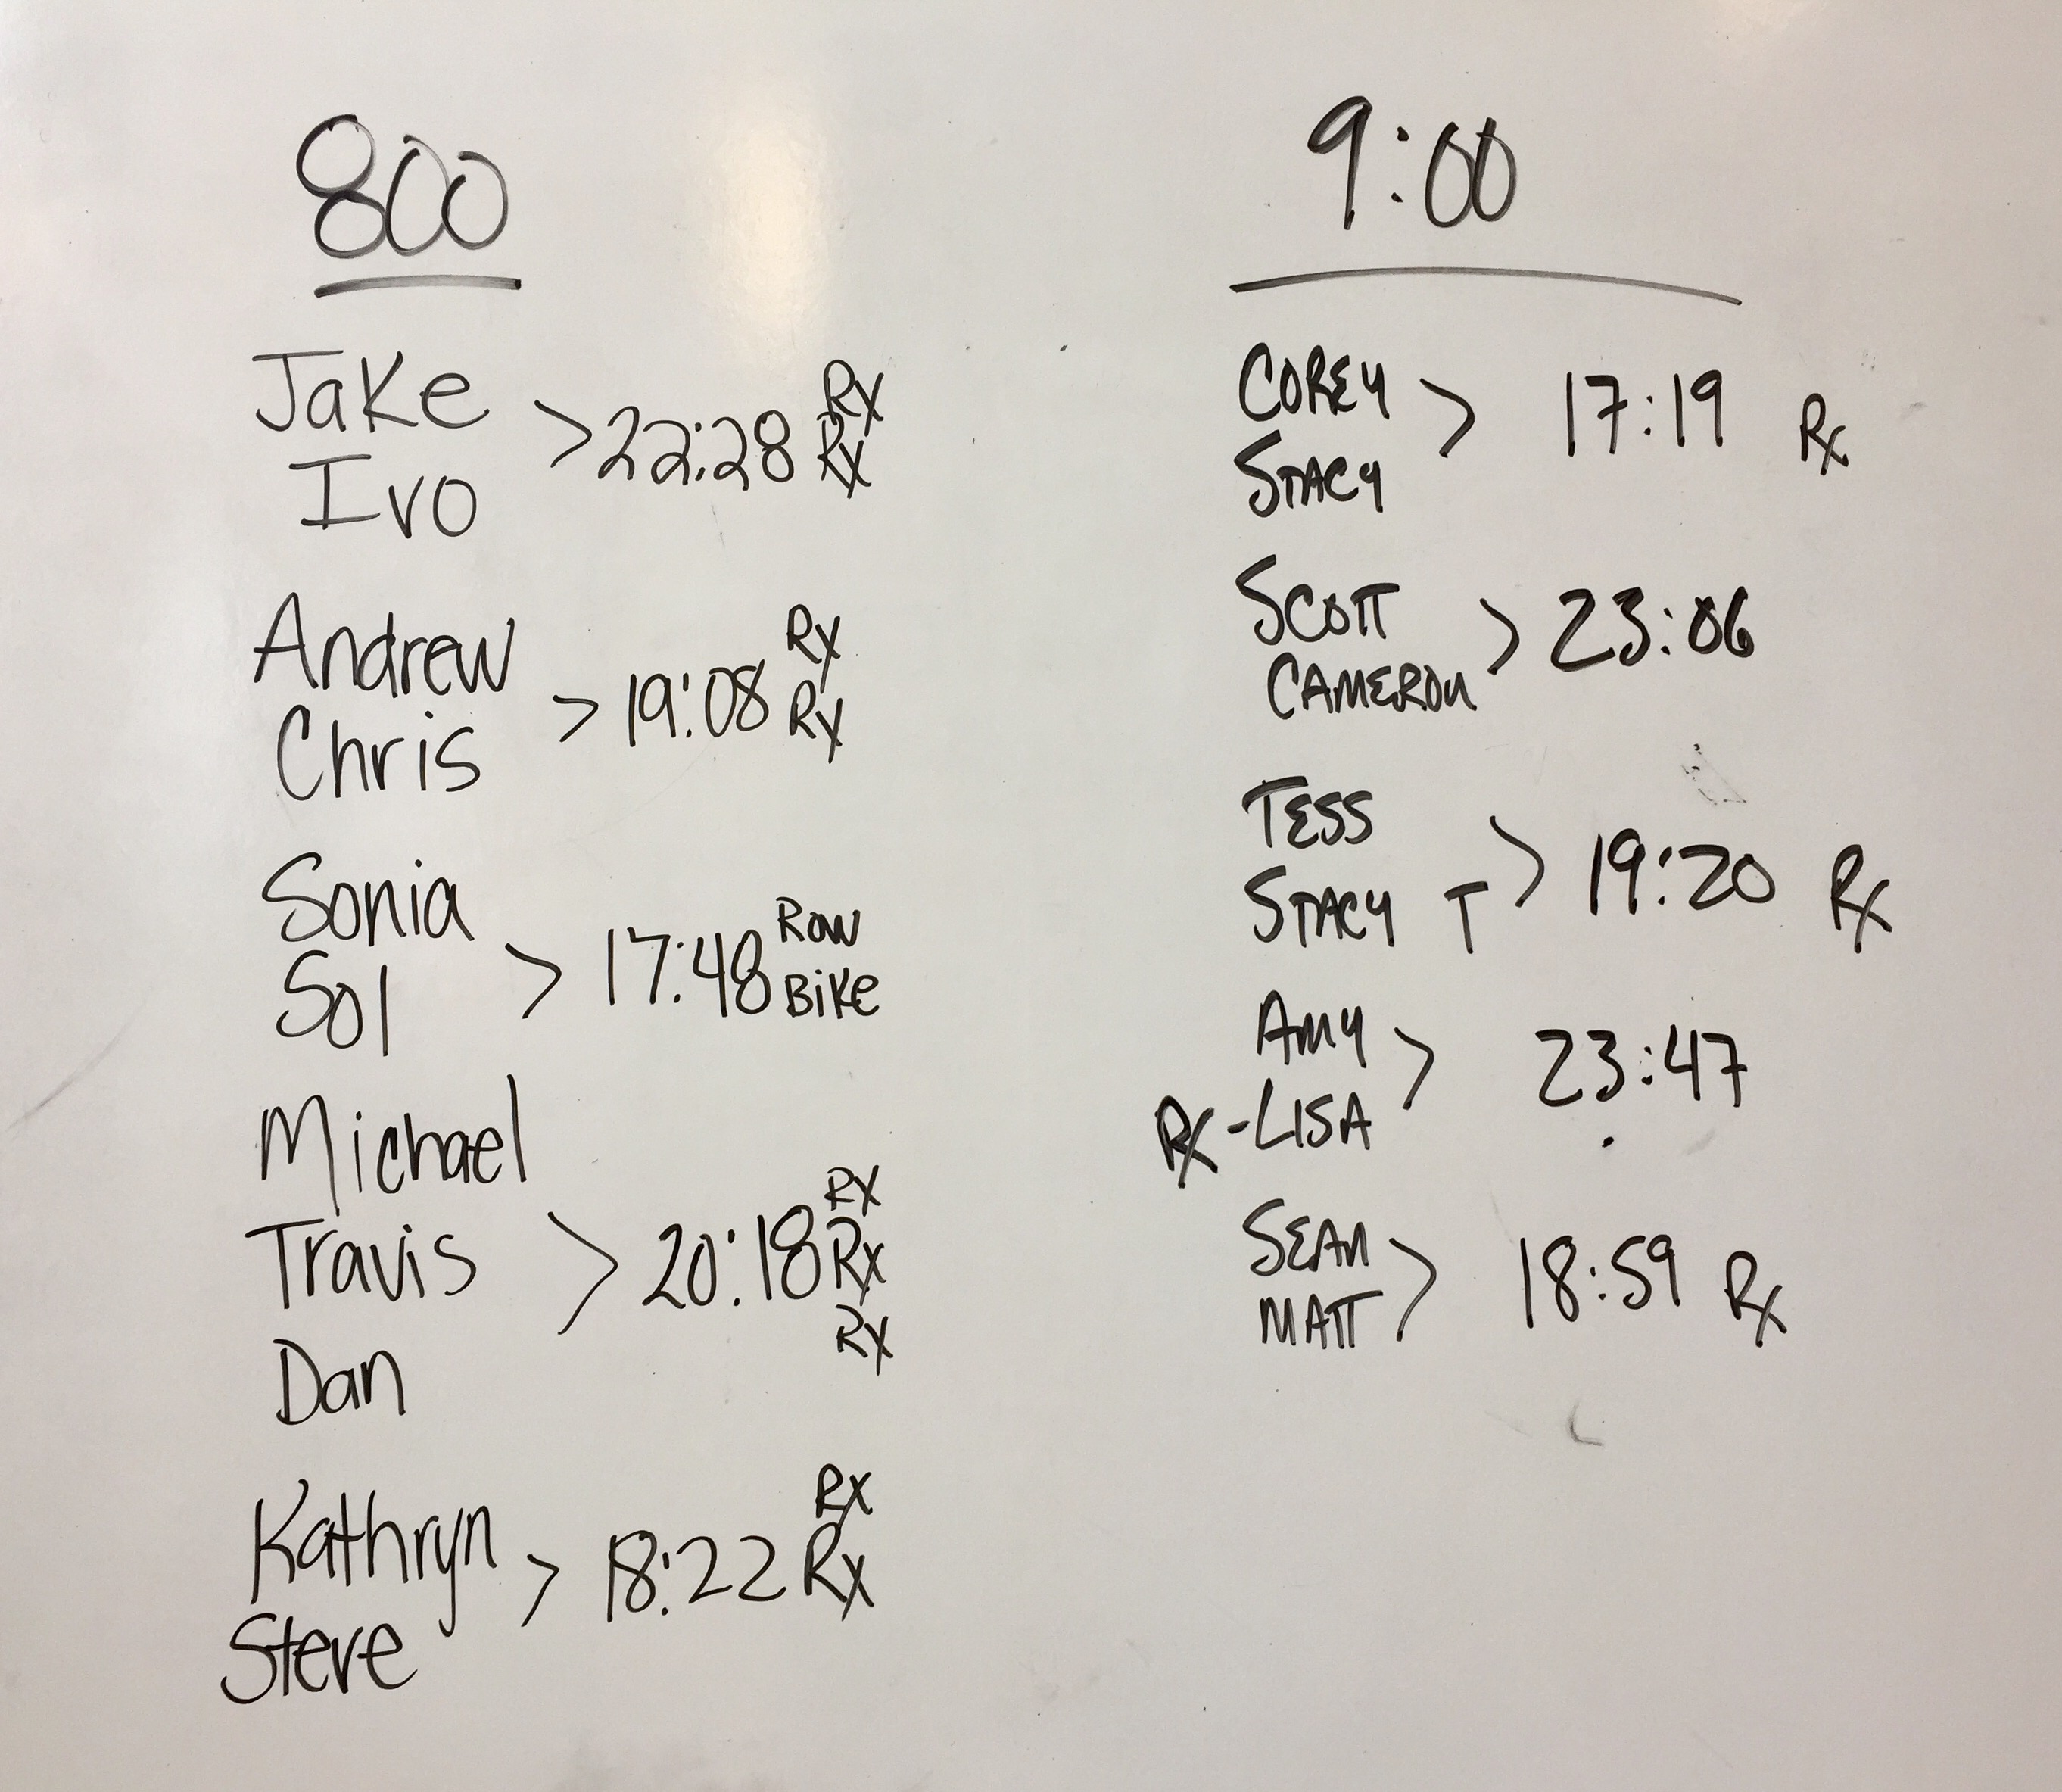 800
Jake
Ivo
> 22:28 Rx
Rx
Andrew
Chris
> 19:08 Rx
Rx
Sonia
Sol
> 17:48 Row
Bike
Michael
Travis
Dan
> 20:18 Rx
Rx
Rx
Kathryn
Steve
> 18:22 Rx
Rx
9:00
COREY
STACY
> 17:19 Rx
SCOTT
CAMERON
> 23:06
TESS
STACY T
> 19:20 Rx
AMY
Rx-LISA
> 23:47
SEAN
MATT
> 18:59 Rx